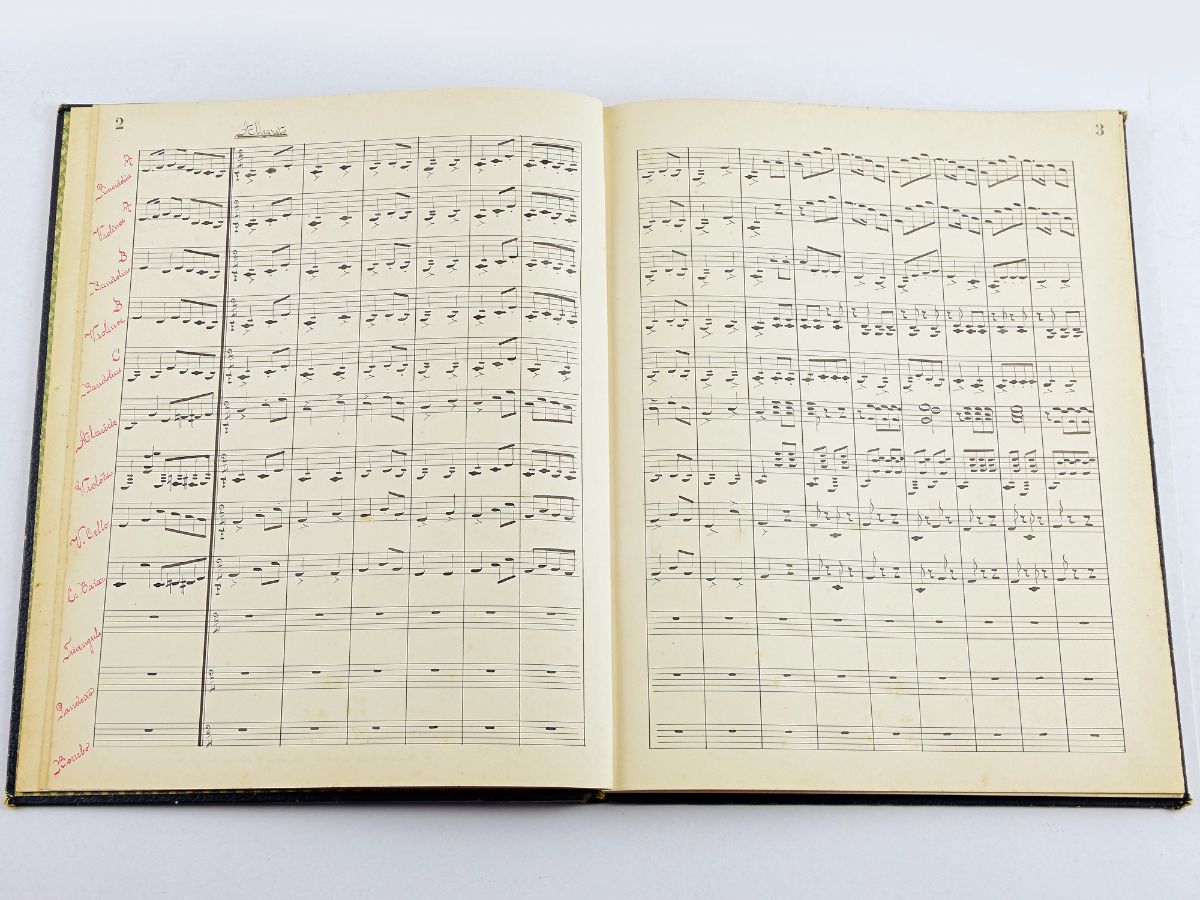 2
Allegro
A
Bandolins
A
Violinos
B
Bandolins
B
Violinos
C
Bandolins
Alaúde
Violões
V. Cello
C. Baixo
Triangulo
Pandeiro
Bombo
3